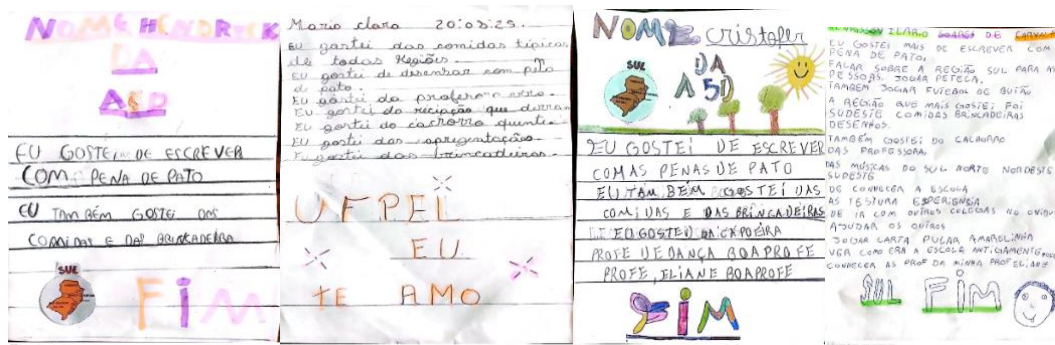 NOME HENDRICK
DA
EU GOSTEI DE ESCREVER
COM PENA DE PATO
EU TAMBÉM GOSTEI DAS
COMIDAS E DAS BRINCADEIRA
SUL
FIM
Maria clara 20:03:25.
EU gostei das comidas típicas
de todas Regiões.
EU gostei de desenhar com pena
de pato.
EU gostei da
EU gostei do que
EU gostei do cachorro quente.
EU gostei das apresentação.
EU gostei das brincadeiras.
UFPEL
EU
TE AMO
NOME cristofer
SUL
DA
A5D
EU GOSTEI DE ESCREVER
COMAS PENAS DE PATO
EU TAM BEM GOSTEI DAS
COMIDAS E DAS BRINCADEIRAS
EU GOSTEI DA CAPOEIRA
PROFE DE DANÇA BOA PROFE
PROFE, ELIANE BOA PROFE
FIM
ILARIO SOARES DE
EU GOSTEI MAIS DE ESCREVER COM
PENA DE PATO,
FALAR SOBRE A REGIÃO SUL PARA
PESSOAS. JOGAR PETECA.
TAMBEM JOGAR FUTEBOL DE BUTÃO
A REGIÃO QUE MAIS GOSTEI FOI
SUDESTE COMIDAS BRINCADEIRAS
DESENHOS.
TAMBÉM GOSTEI DO CACHORRO
DAS PROFESSORA,
DAS MÚSICAS DO SUL NORTE NORDESTE
SUDESTE
DE CONHECER A ESCOLA
AS TESTURA ESPERIENCIA
DE IR COM OUTROS COLEGAS NO
AJUDAR OS OUTROS
JOGAR CARTA PULAR AMARELINHA
VER COMO ERA A ESCOLA ANTIGAMENTE
CONHECER AS PROF DA MINHA PROF ELIANE
SUL FIM